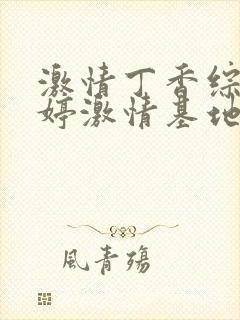 激情丁香综
婷激情基地
風青殤